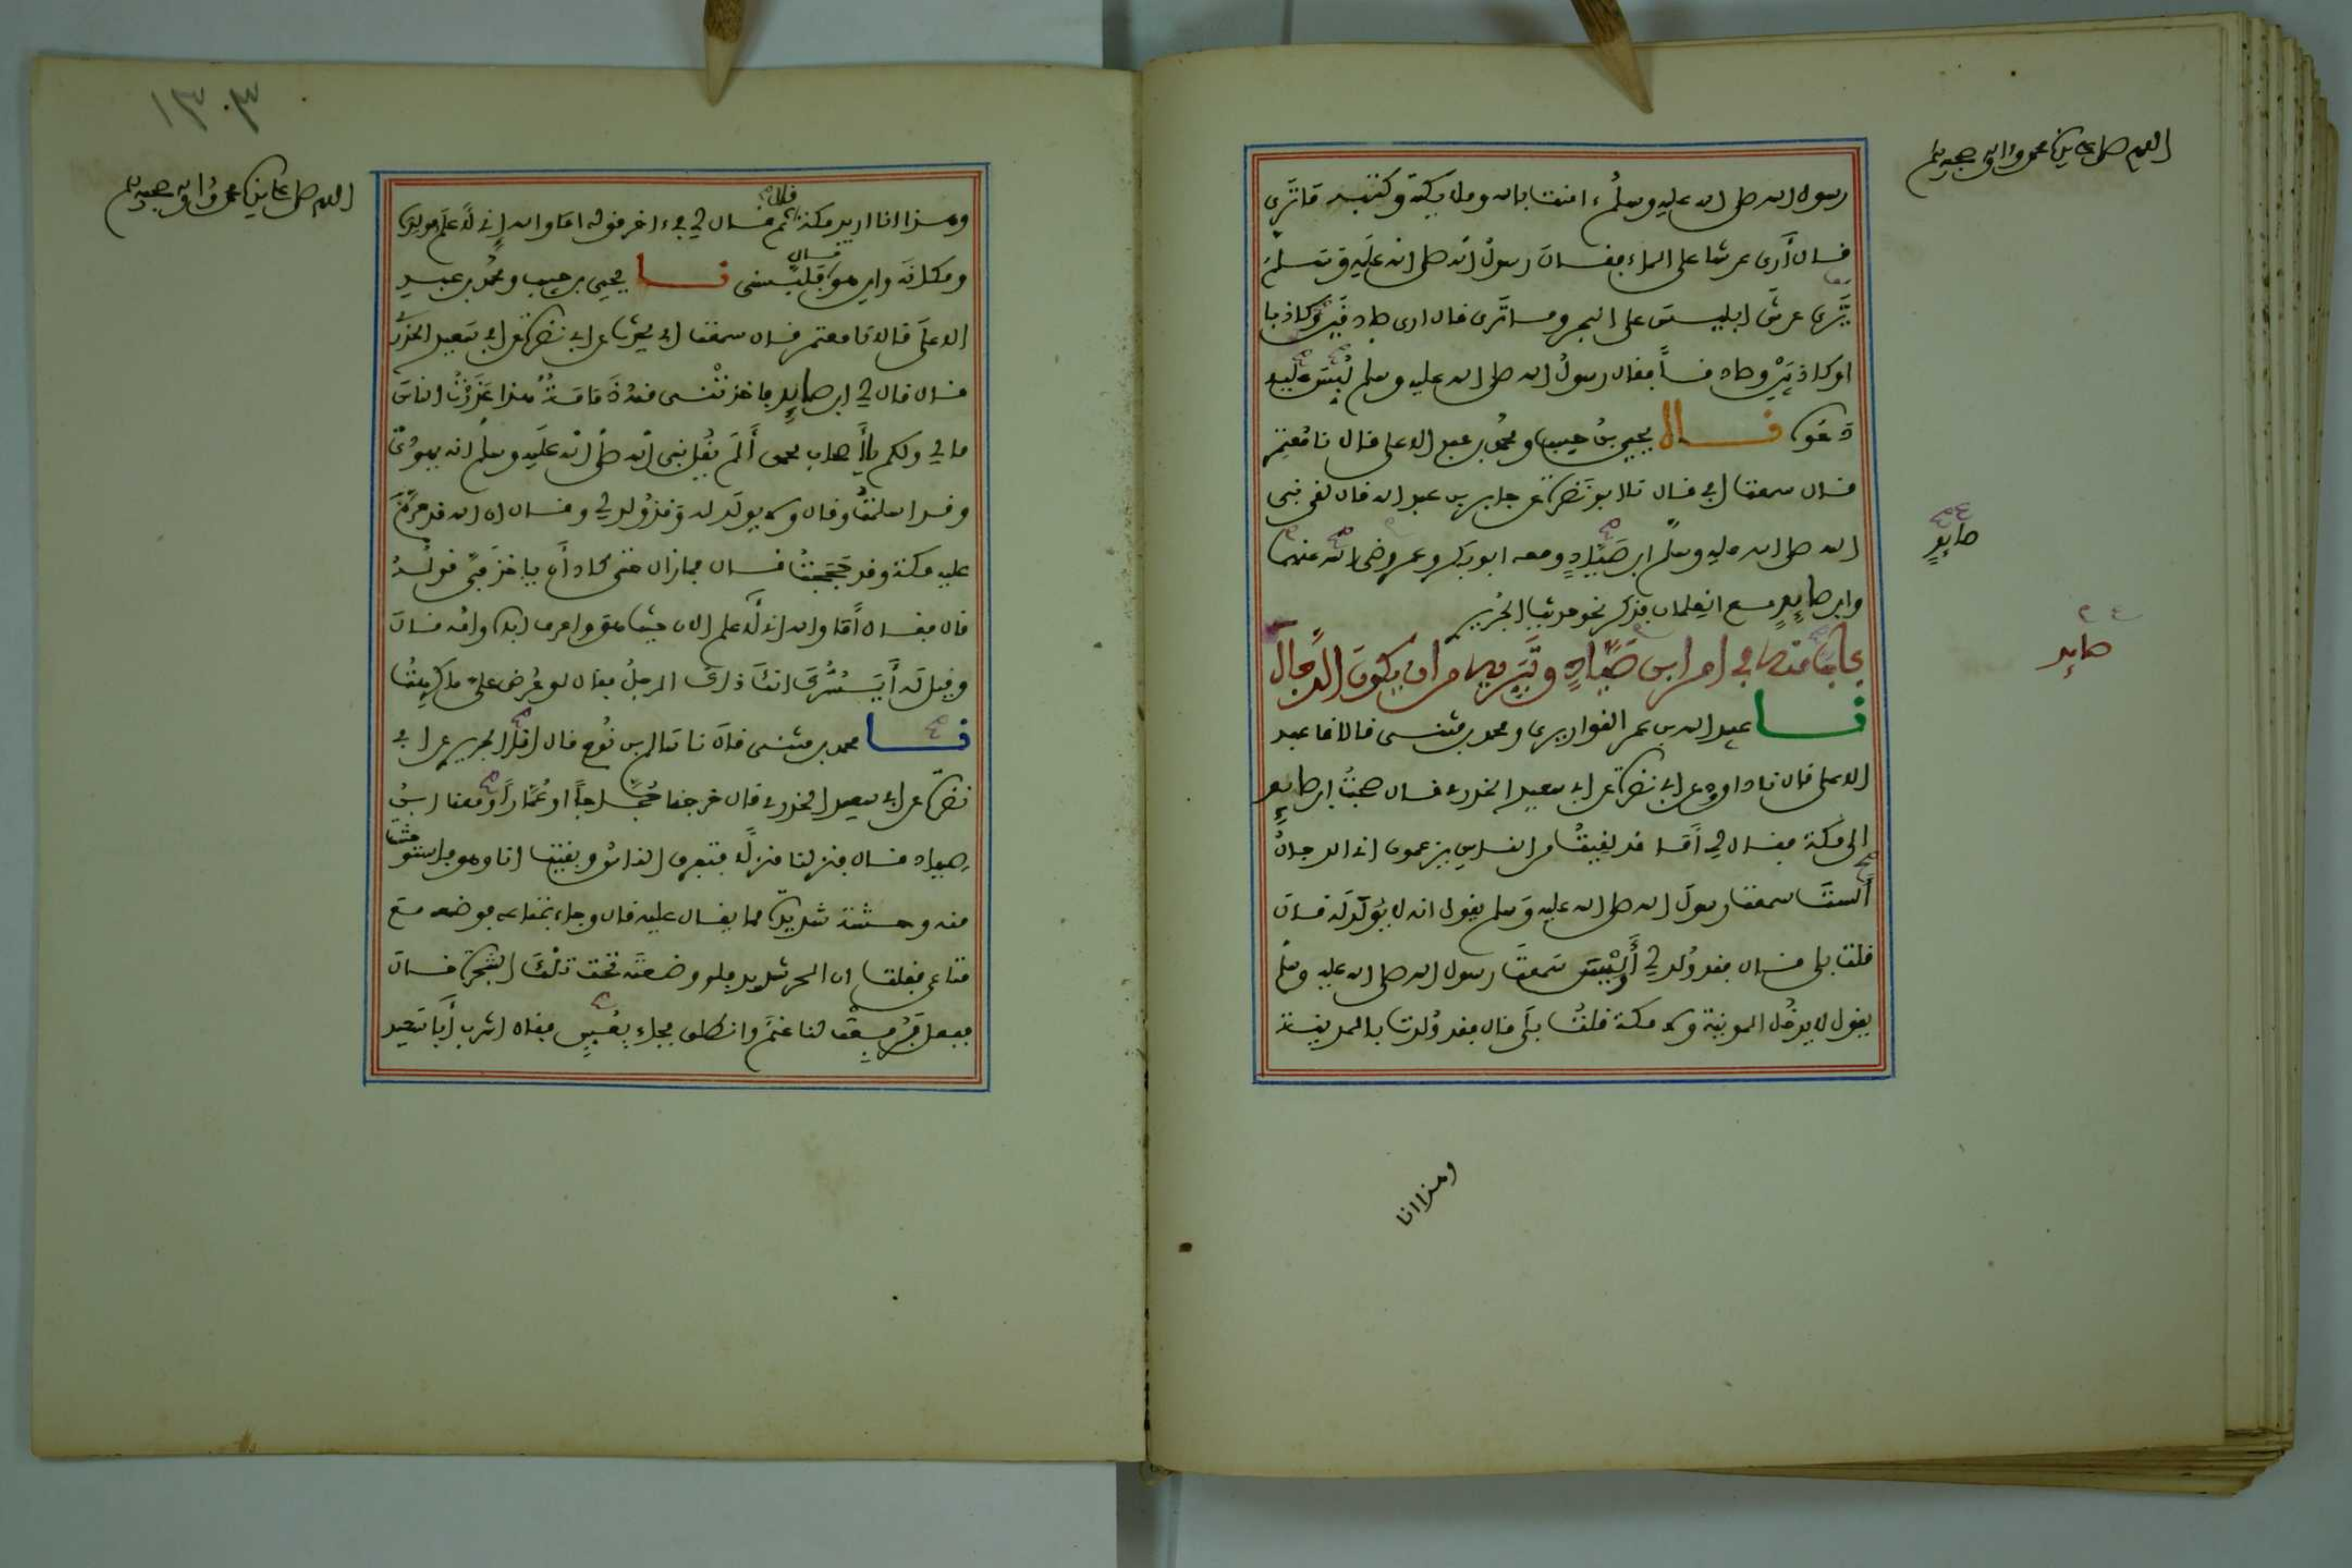 اللهم صل على سيدنا محمد وآله وصحبه وسلم
رسول الله صلى الله عليه وسلم ءامنت بالله وملايكته وكتبه ما ترى
فال أرى عرشا على الماء فقال رسول الله صلى الله عليه وسلم
ترى عرش ابليس على البحر وما ترى فال ارى صادقين وكاذبا
او كاذبين وصادفا فقال رسول الله صلى الله عليه وسلم لبس عليه
دعوه فال يحيى بن حبيب ومحمد بن عبد الاعلى فالا نا معتمر
فال سمعت ابي فال نا ابو نضرة عن جابر بن عبد الله فال لفي نبي
الله صلى الله عليه وسلم ابن صياد ومعه ابو بكر وعمر رضي الله عنهما
صايد
وابن صايد مع الغلمان فذكر نحو حديث الجريري
باب منه في امر ابن صياد وتبريه من ان يكون الدجال
صايد
نا عبيد الله بن عمر الفواريري ومحمد بن مثنى فالا نا عبد
الاعلى فال نا داوود عن ابي نضرة عن ابي سعيد الخدري فال صحبت ابن صايد
الى مكة فقال لي أما فد لفيت من الناس يزعمون اني الدجال
ألست سمعت رسول الله صلى الله عليه وسلم يفول انه لا يولد له فال
فلت بلى فال ففد ولد لي أوليس سمعت رسول الله صلى الله عليه وسلم
يفول لا يدخل المدينة ولا مكة فلت بلى فال ففد ولدت بالمدينة
وهذا انا
١٣٠٣
اللهم صل على سيدنا محمد وآله وصحبه وسلم
وهذا انا اريد مكة فال ثم فال لي في ءاخر فوله اما والله إني لأعلم مولده
ومكانه واين هو فال فلبسني نا يحيى بن حبيب ومحمد بن عبد
الاعلى فالا نا معتمر فال سمعت ابي يحدث عن ابي نضرة عن ابي سعيد الخدري
فال فال لي ابن صايد فاخذتني منه ذمامة هذا عذرت الناس
ما لي ولكم يا أصحاب محمد ألم يفل نبي الله صلى الله عليه وسلم انه يهودي
وفد اسلمت وفال ولا يولد له وفد ولد لي وفال ان الله فد حرم
عليه مكة وفد حججت فال فما زال حتى كاد أن ياخذ في فوله
فال ففال أما والله اني لأعلم الان حيث هو واعرف اباه وامه فال
وفيل له أيسرك انك ذاك الرجل ففال لو عرض علي ما كرهت
نا محمد بن مثنى فال نا سالم بن نوح فال انا الجريري عن ابي
نضرة عن ابي سعيد الخدري فال خرجنا حجاجا او عمارا ومعنا ابن
صياد فال فنزلنا منزلا فتفرف الناس وبفيت انا وهو فاستوحشت
منه وحشة شديدة مما يفال عليه فال وجاء بمتاعه فوضعه مع
متاعي ففلت ان الحر شديد فلو وضعته تحت تلك الشجرة فال
ففعل فرفعت لنا غنم وانطلف فجاء بعس ففال اشرب أبا سعيد